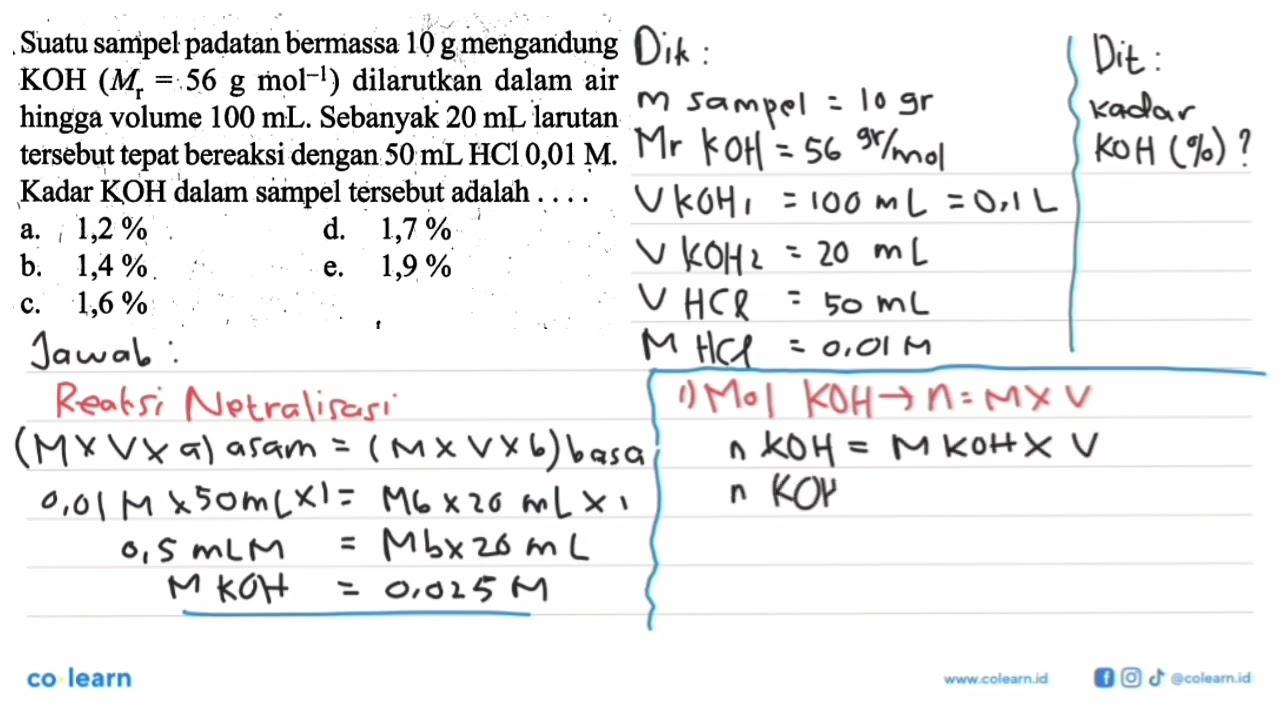 Suatu sampel padatan bermassa 10 g mengandung
KOH (Mr = 56 g mol⁻¹) dilarutkan dalam air
hingga volume 100 mL. Sebanyak 20 mL larutan
tersebut tepat bereaksi dengan 50 mL HCl 0,01 M.
Kadar KOH dalam sampel tersebut adalah . . . .
a. 1,2 % d. 1,7 %
b. 1,4 % e. 1,9 %
c. 1,6 %
Dik :
m sampel = 10 gr
Mr KOH = 56 gr/mol
V KOH1 = 100 mL = 0,1 L
V KOH2 = 20 mL
V HCl = 50 mL
M HCl = 0,01 M
Dit :
kadar
KOH (%) ?
Jawab :
Reaksi Netralisasi
(M x V x a) asam = (M x V x b) basa
0,01 M x 50 mL x 1 = Mb x 20 mL x 1
0,5 mL M = Mb x 20 mL
M KOH = 0,025 M
1) Mol KOH → n = M x V
n KOH = M KOH x V
n KOH
co learn
www.colearn.id
@colearn.id